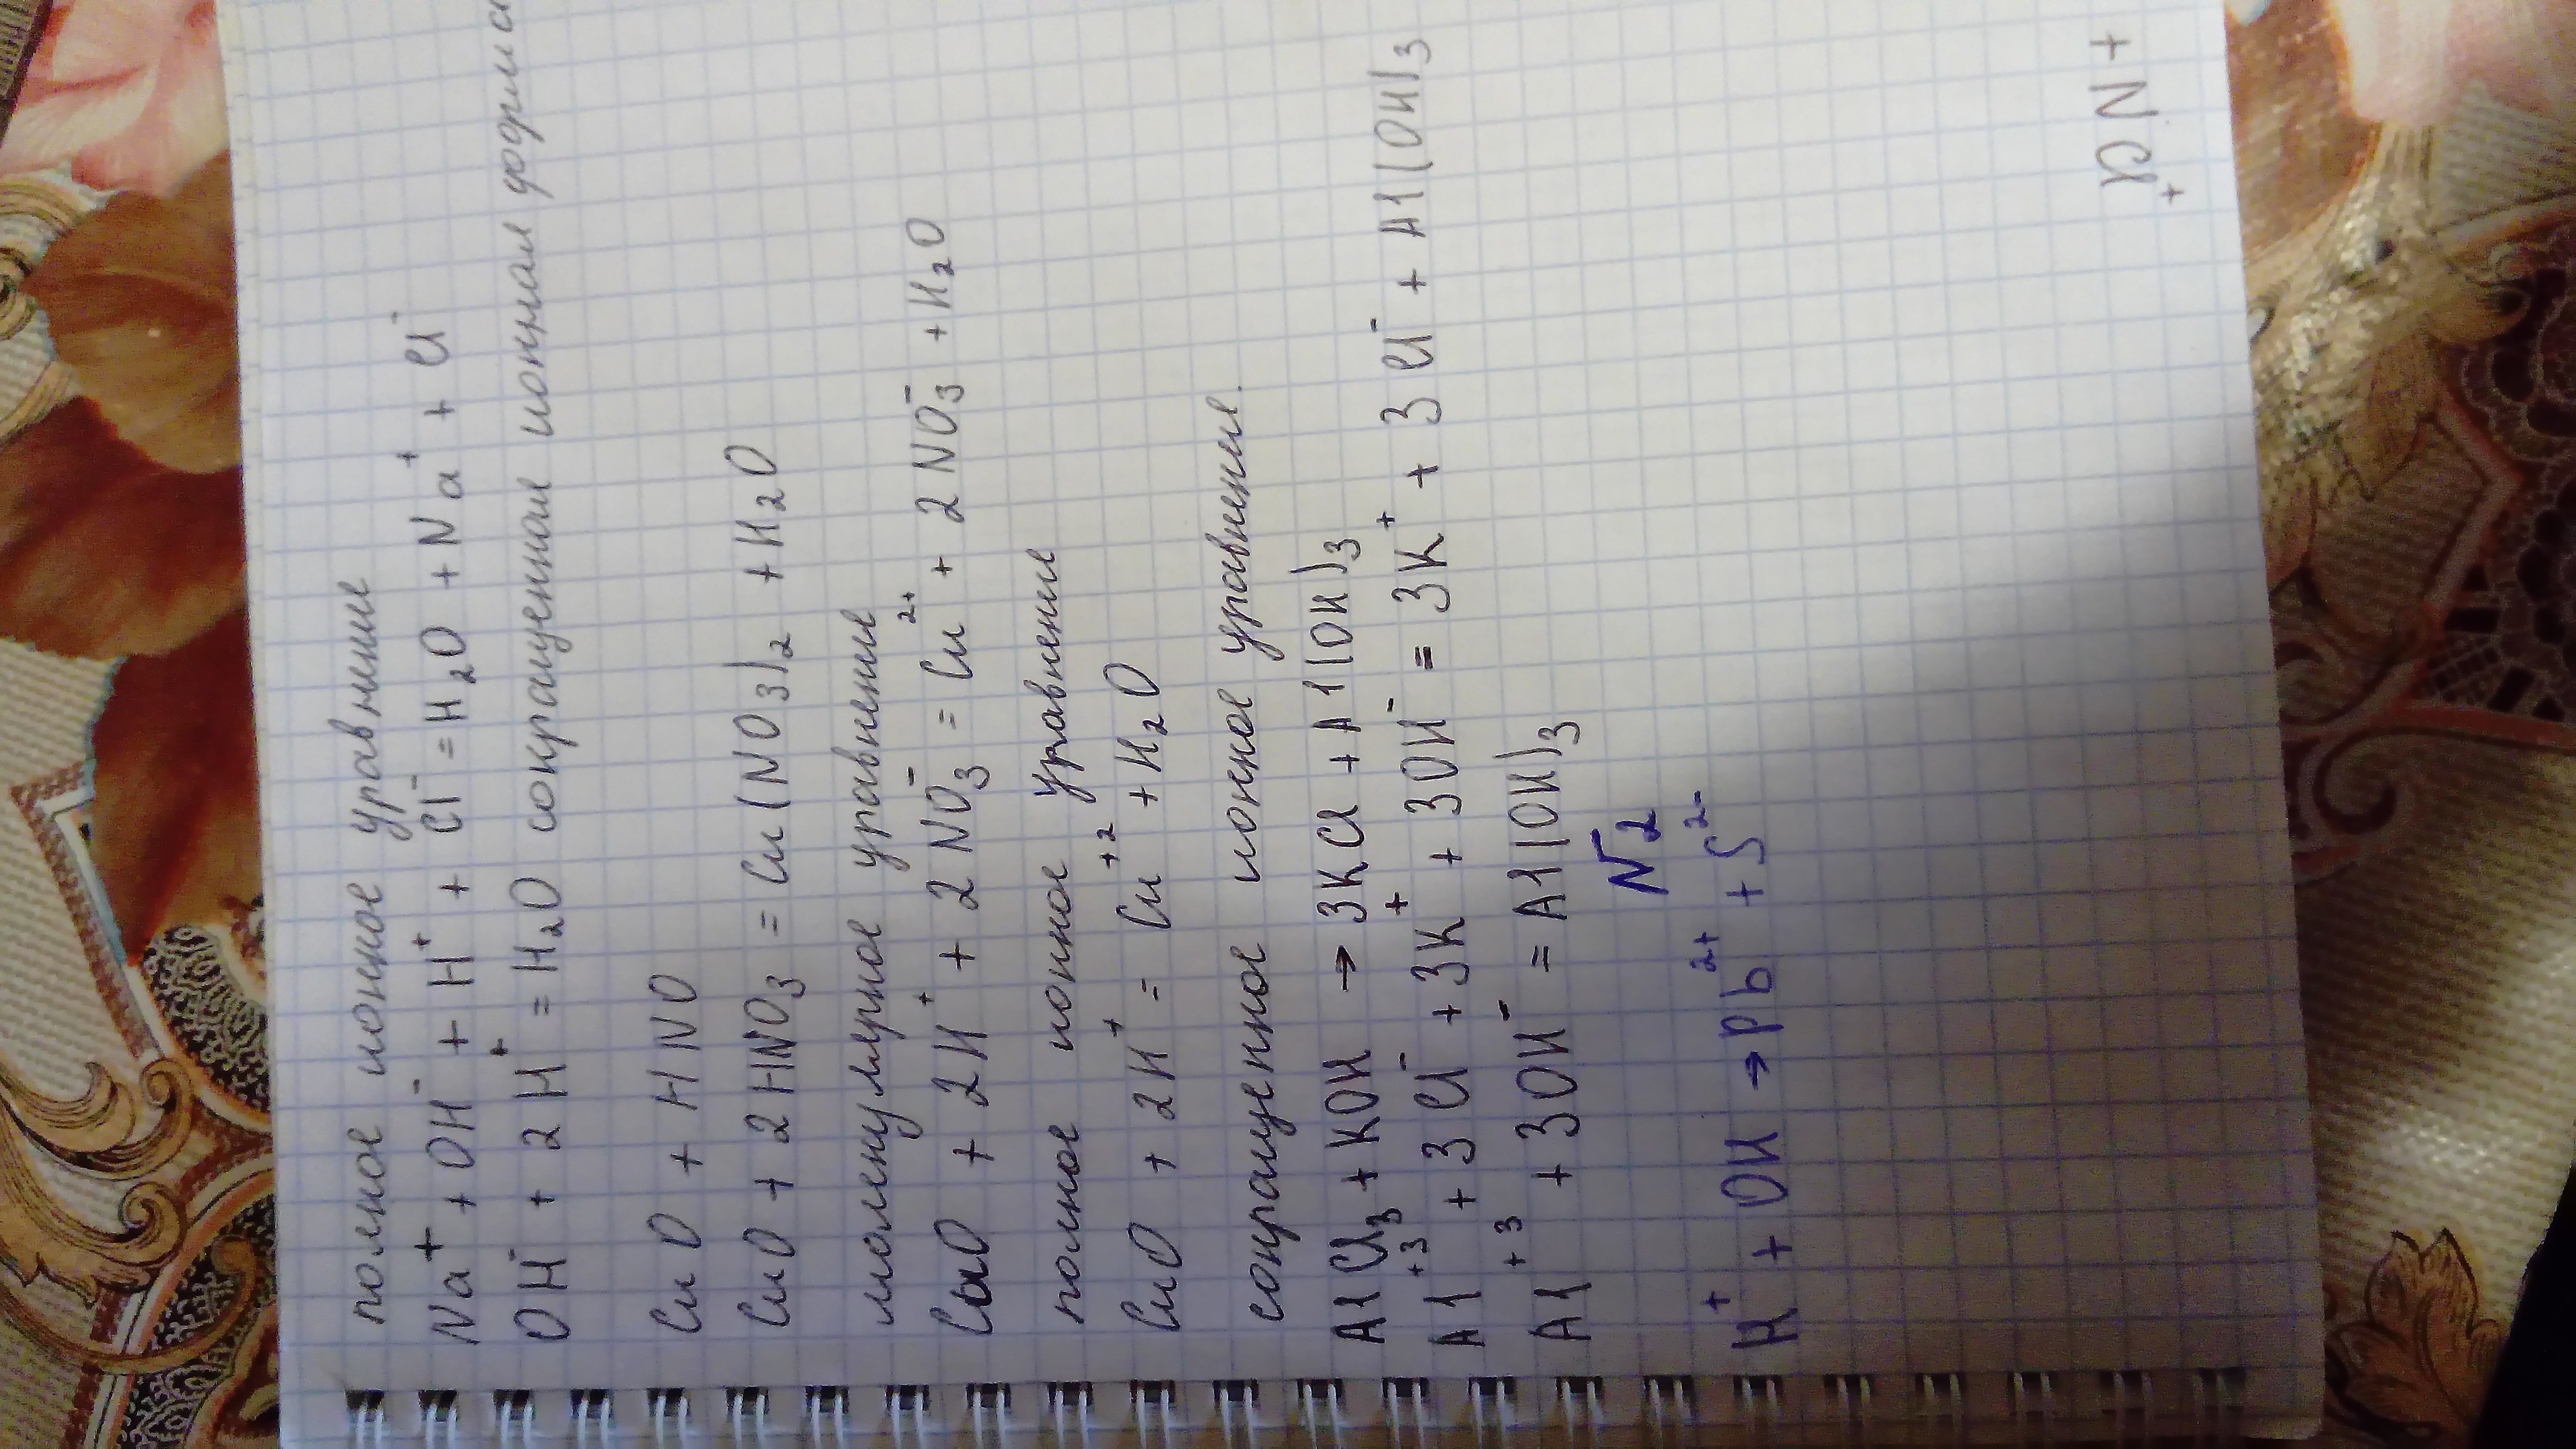 полное ионное уравнение
Na⁺ + OH⁻ + H⁺ + Cl⁻ = H₂O + Na⁺ + Cl⁻
OH⁻ + 2H⁺ = H₂O сокращенная ионная
CuO + HNO
CuO + 2HNO₃ = Cu(NO₃)₂ + H₂O
молекулярное уравнение
CuO + 2H⁺ + 2NO₃⁻ = Cu²⁺ + 2NO₃⁻ + H₂O
полное ионное уравнение
CuO + 2H⁺ = Cu⁺² + H₂O
сокращенное ионное уравнение.
AlCl₃ + KOH → 3KCl + Al(OH)₃
Al⁺³ + 3Cl⁻ + 3K⁺ + 3OH⁻ = 3K⁺ + 3Cl⁻ + Al(OH)₃
Al⁺³ + 3OH⁻ = Al(OH)₃
N2
H⁺ + OH → Pb²⁺ + S²⁻